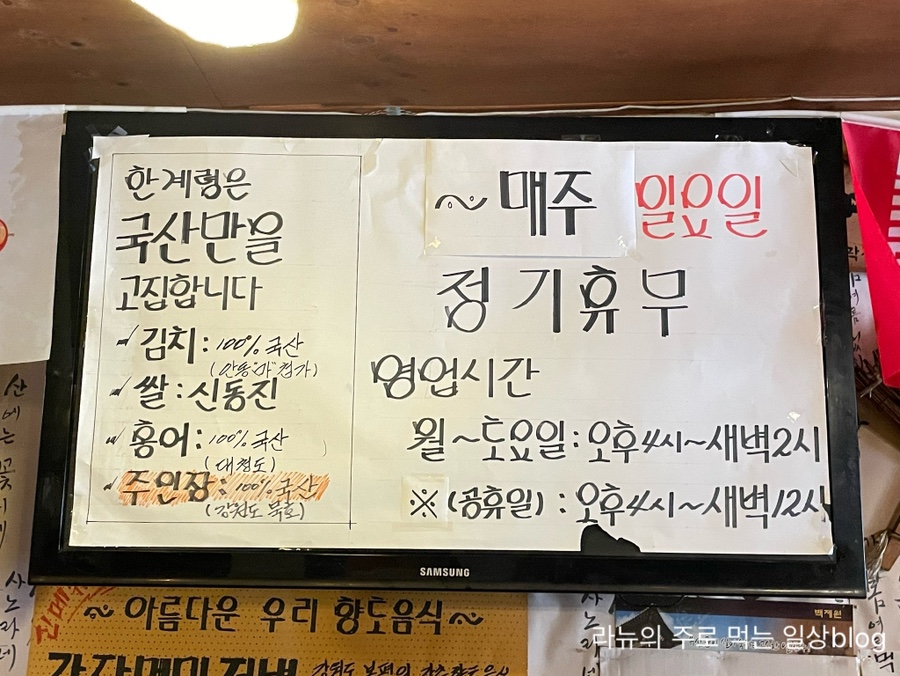 한계령은
국산만을
고집합니다
김치: 100% 국산
(안동"마"첨가)
쌀: 신동진
홍어: 100% 국산
(대청도)
주인장: 100% 국산
(강원도 묵호)
~ 매주 일요일
정기휴무
영업시간
월~토요일: 오후4시~새벽2시
※(공휴일): 오후4시~새벽12시
SAMSUNG
~ 아름다운 우리 향토음식 ~
백제원
라뉴의 주로 먹는 일상blog